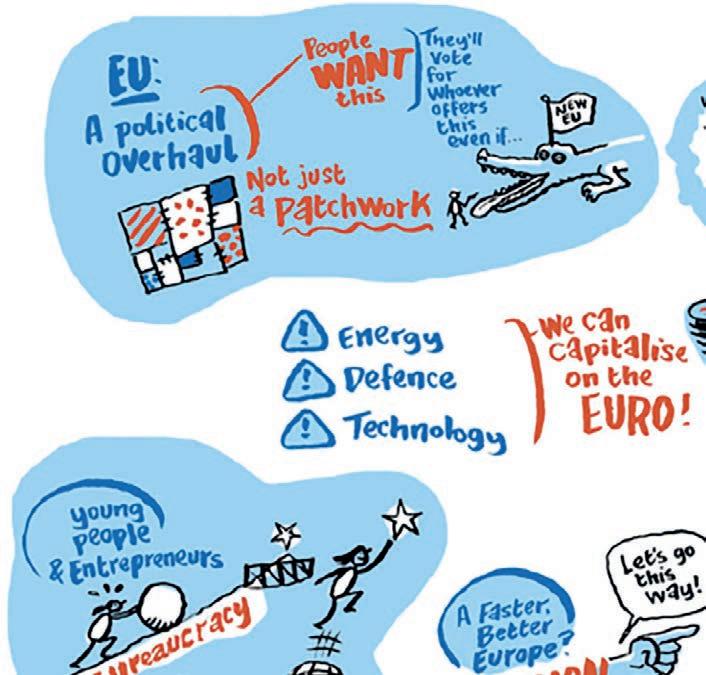 EU:
A political
overhaul
People
WANT
this
They'll
vote
for
whoever
offers
this
even if...
NEW
EU
Not just
a Patchwork
Energy
Defence
Technology
We can
capitalise
on the
EURO!
young
people
& Entrepreneurs
Bureaucracy
A Faster,
Better
Europe?
Let's go
this
way!